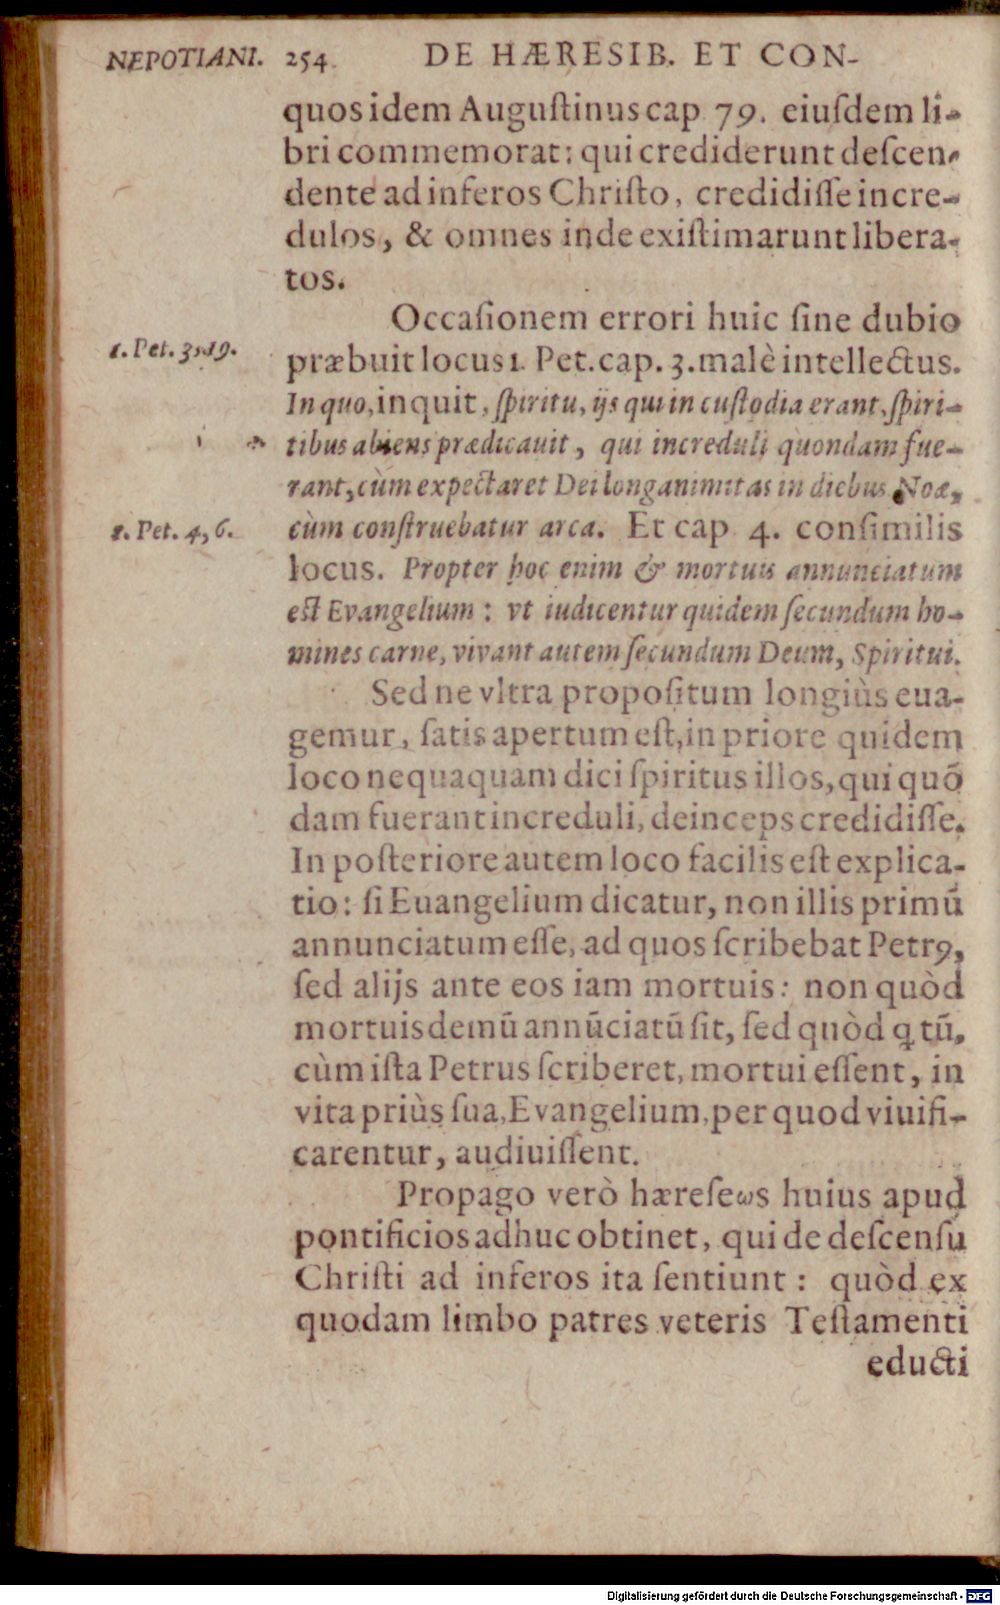 NEPOTIANI. 254. DE HÆRESIB. ET CON-
quos idem Auguſtinus cap 79. eiuſdem li-
bri commemorat: qui crediderunt deſcen-
dente ad inferos Chriſto, credidiſſe incre-
dulos, & omnes inde exiſtimarunt libera-
tos.
Occaſionem errori huic ſine dubio
1. Pet. 3, 19.
præbuit locus 1. Pet. cap. 3. malè intellectus.
In quo, inquit, ſpiritu, ijs qui in cuſtodia erant, ſpiri-
tibus abiens prædicauit, qui increduli quondam fue-
rant, cùm expectaret Dei longanimitas in diebus Noæ,
1. Pet. 4, 6.
cùm conſtruebatur arca. Et cap 4. conſimilis
locus. Propter hoc enim & mortuis annunciatum
eſt Evangelium: vt iudicentur quidem ſecundum ho-
mines carne, vivant autem ſecundum Deum, Spiritui.
Sed ne vltra propoſitum longiùs eua-
gemur, ſatis apertum eſt, in priore quidem
loco nequaquam dici ſpiritus illos, qui quõ
dam fuerant increduli, deinceps credidiſſe.
In poſteriore autem loco facilis eſt explica-
tio: ſi Euangelium dicatur, non illis primũ
annunciatum eſſe, ad quos ſcribebat Petrꝯ,
ſed alijs ante eos iam mortuis: non quòd
mortuis demũ annũciatũ ſit, ſed quòd ꝗ tũ,
cùm iſta Petrus ſcriberet, mortui eſſent, in
vita priùs ſua, Evangelium, per quod viuifi-
carentur, audiuiſſent.
Propago verò hæreſeωs huius apud
pontificios adhuc obtinet, qui de deſcenſu
Chriſti ad inferos ita ſentiunt: quòd ex
quodam limbo patres veteris Teſtamenti
educti
Digitalisierung gefördert durch die Deutsche Forschungsgemeinschaft - DFG